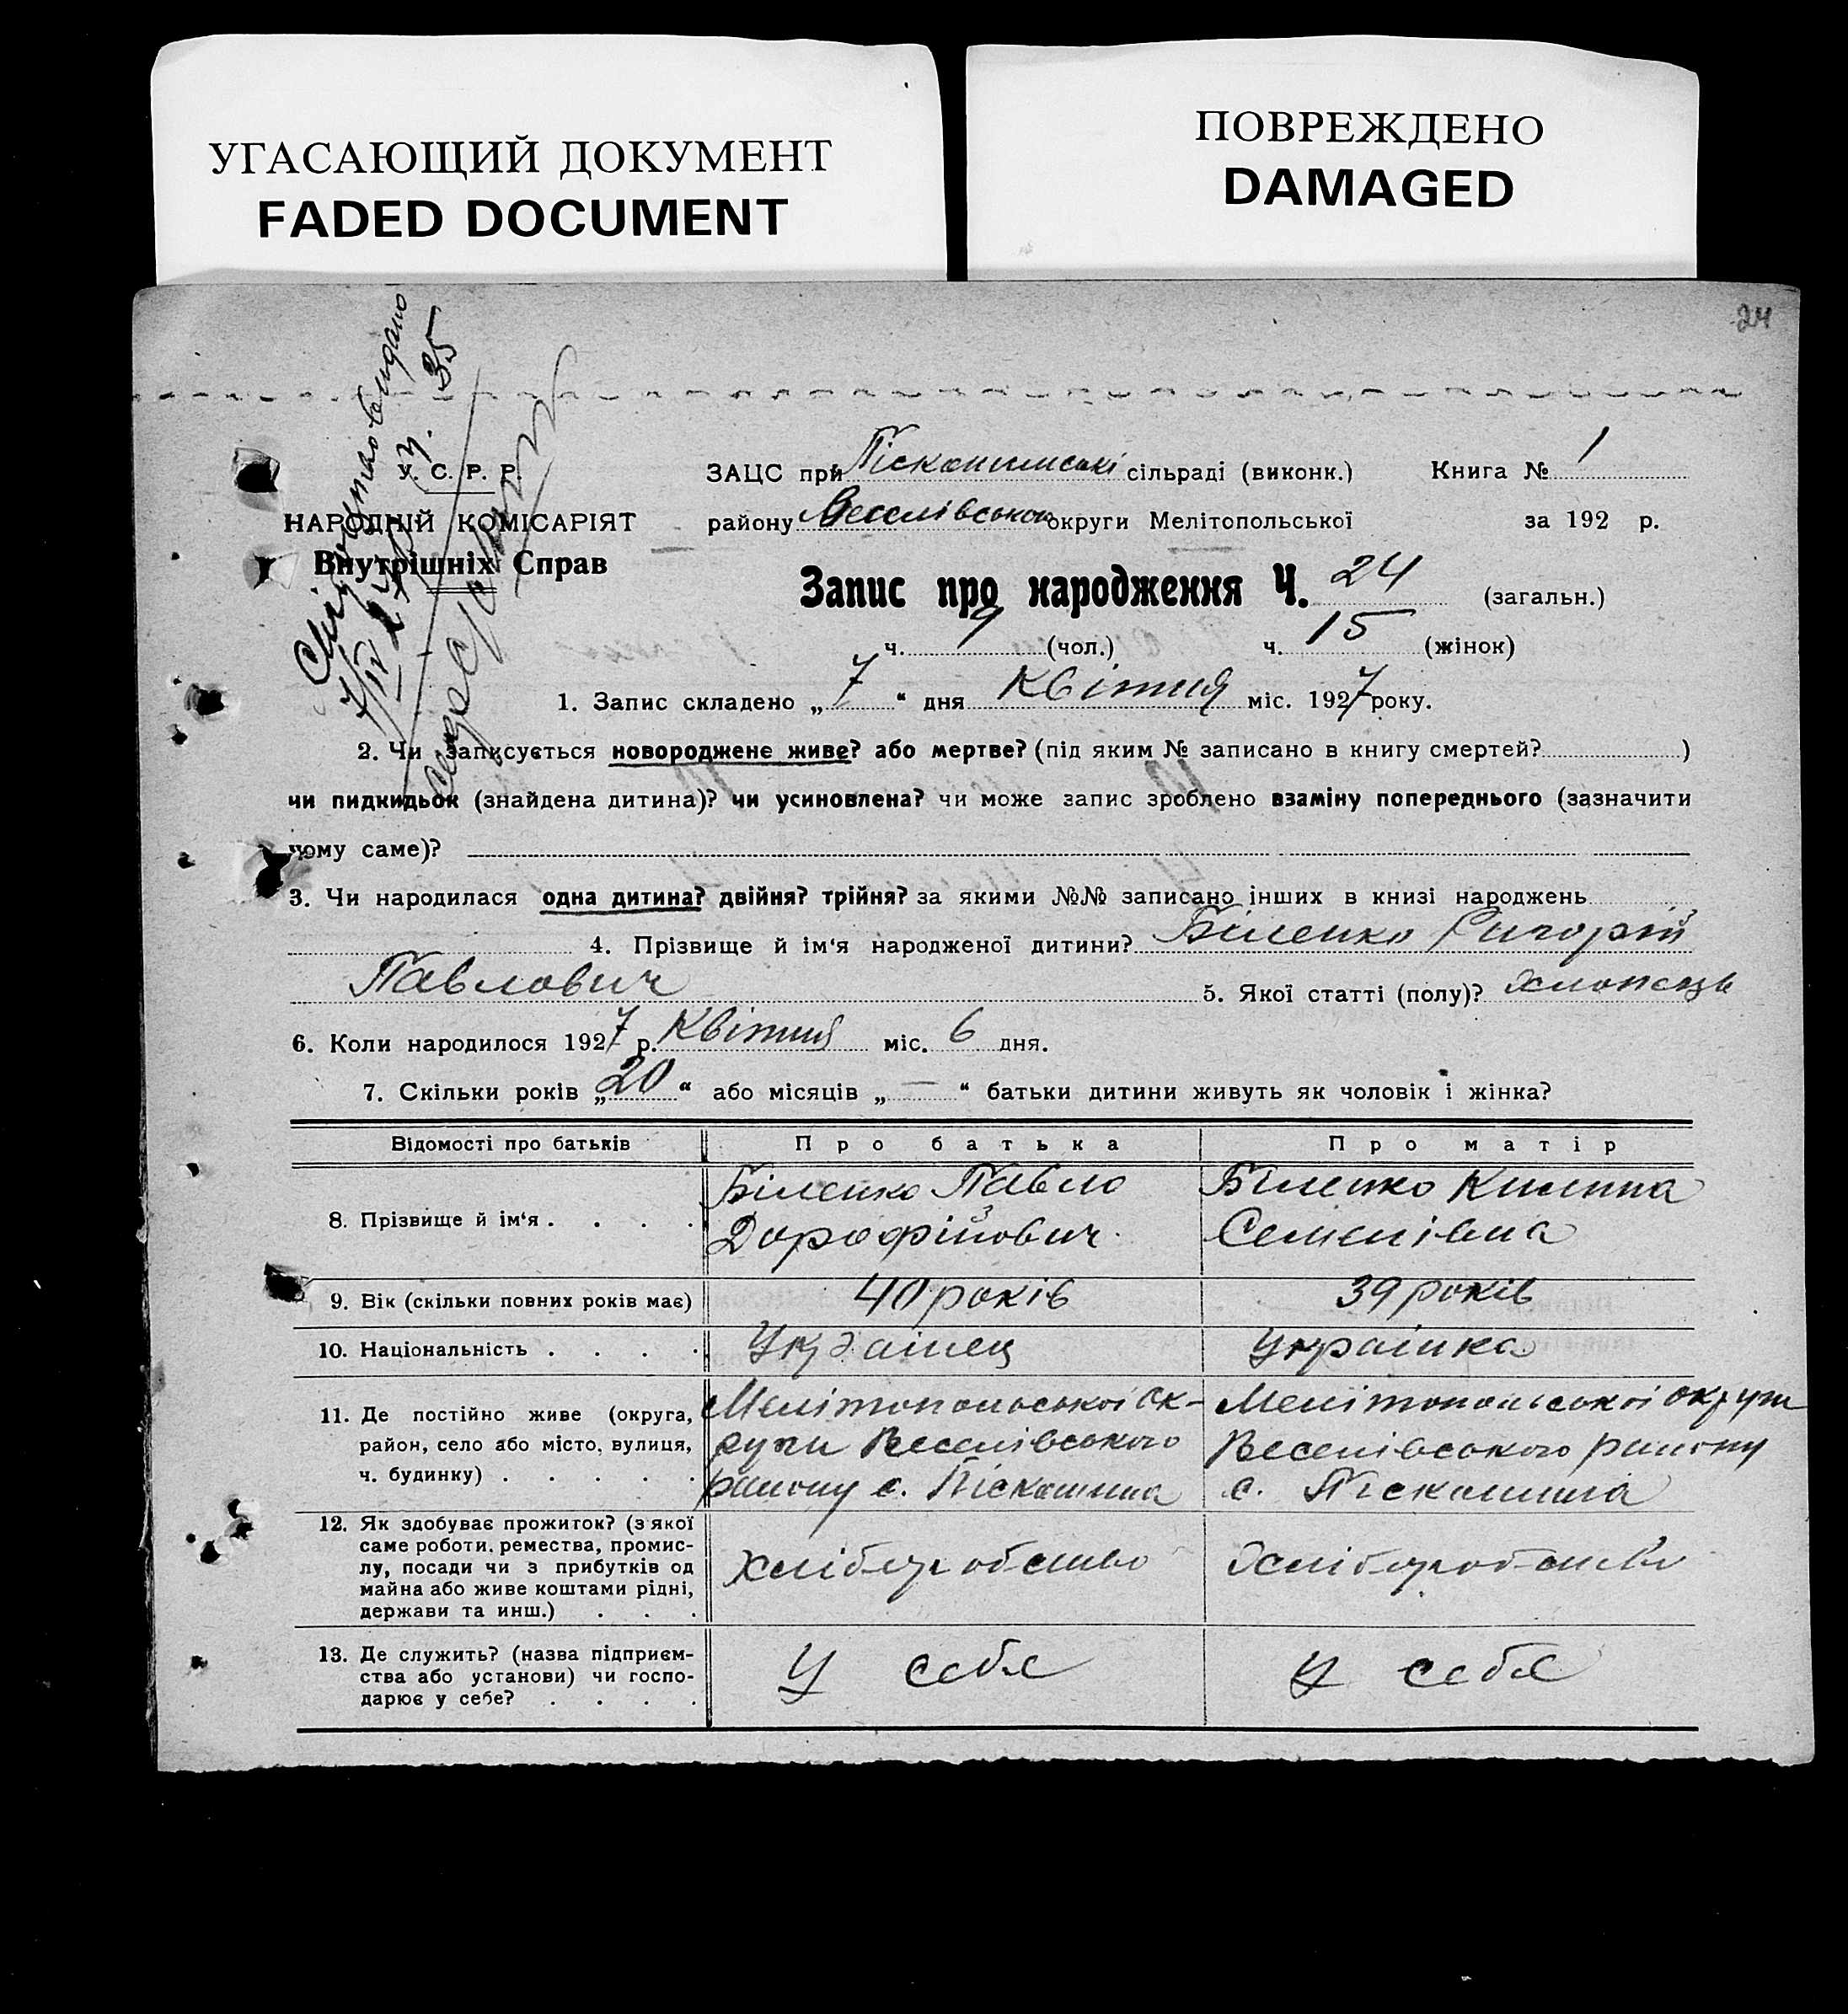 УГАСАЮЩИЙ ДОКУМЕНТ
FADED DOCUMENT
ПОВРЕЖДЕНО
DAMAGED
24
видано
35
У. С. Р. Р.
НАРОДНІЙ КОМІСАРІЯТ
Внутрішніх Справ
ЗАЦС при Піскошинські сільраді (виконк.) Книга № 1
району Веселівського округи Мелітопольської за 192 р.
Запис про народження Ч. 24 (загальн.)
ч. 9 (чол.) ч. 15 (жінок)
1. Запис складено „ 7 “ дня Квітня міс. 1927 року.
2. Чи записується новороджене живе? або мертве? (під яким № записано в книгу смертей? )
чи пидкидьок (знайдена дитина)? чи усиновлена? чи може запис зроблено взаміну попереднього (зазначити
чому саме)?
3. Чи народилася одна дитина? двійня? трійня? за якими №№ записано інших в книзі народжень
4. Прізвище й ім‘я народженої дитини? Біленко Григорій
Павлович 5. Якої статті (полу)? хлопець
6. Коли народилося 1927 р. Квітня міс. 6 дня.
7. Скільки років „ 20 “ або місяців „ — “ батьки дитини живуть як чоловік і жінка?
Відомості про батьків Про батька Про матір
8. Прізвище й ім‘я . . . . Біленко Павло Біленко Килина
Дорофійович Семенівна
9. Вік (скільки повних років має) 40 років 39 років
10. Національність . . . . Українец Українка
11. Де постійно живе (округа, Мелітопольської ок- Мелітопольської округи
район, село або місто, вулиця, руги Веселівського Веселівського району
ч. будинку) . . . . . району с. Піскошина с. Піскошина
12. Як здобуває прожиток? (з якої
саме роботи, ремества, промис-
лу, посади чи з прибутків од хліборобство хліборобство
майна або живе коштами рідні,
держави та инш.) . . .
13. Де служить? (назва підприєм-
ства або установи) чи госпо- У себе У себе
дарює у себе? . . . .